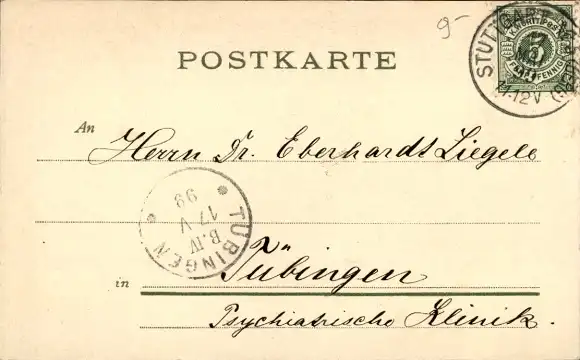 9-
POSTKARTE
STUTTGART
MAI
11-12V
5
An Herrn Dr. Eberhardt Liegele
TÜBINGEN
B.IV
17 V
99
in Tübingen
Psychiatrische Klinik.